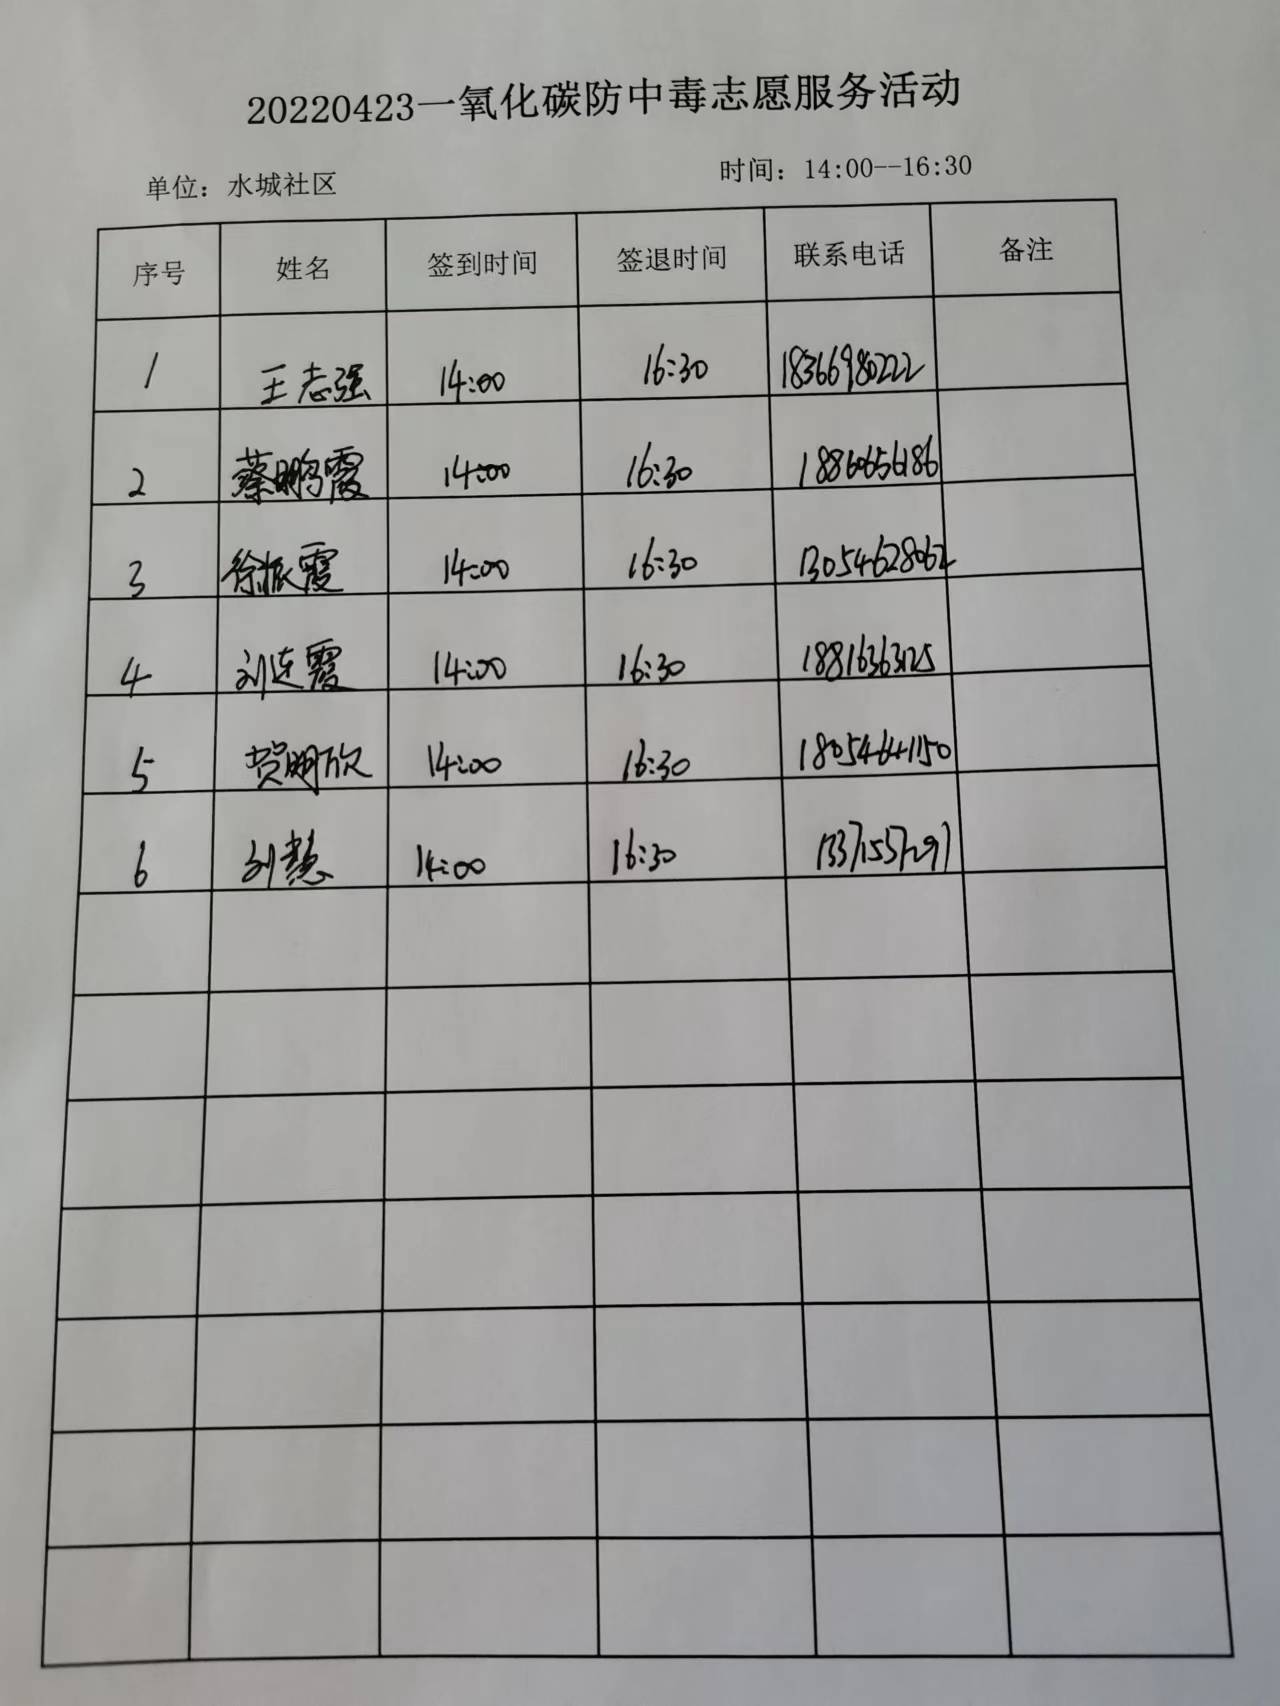 20220423一氧化碳防中毒志愿服务活动
单位：水城社区 时间：14:00--16:30
序号 姓名 签到时间 签退时间 联系电话 备注
1 王志强 14:00 16:30 18366980222
2 蔡鹏霞 14:00 16:30 18860656186
3 徐振霞 14:00 16:30 13054628062
4 刘连霞 14:00 16:30 18816363125
5 贺明欣 14:00 16:30 18054641150
6 刘慧 14:00 16:30 13371557297